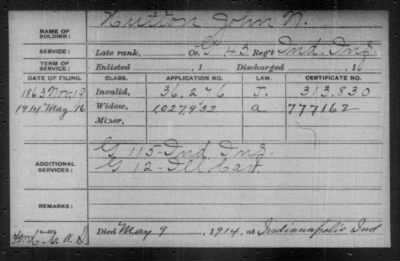 NAME OF SOLDIER: Hutton John N.
SERVICE: Late rank, Co. G 43 Reg't Ind. Inf.
TERM OF SERVICE: Enlisted , 1 Discharged , 1
DATE OF FILING. CLASS. APPLICATION NO. LAW. CERTIFICATE NO.
1863 Nov. 19 Invalid, 36,276 J. 313,830
1914 May 16 Widow, 1,027,932 a 777162
Minor,
ADDITIONAL SERVICES: G 115-Ind. Inf.
G 12-Ill Cav.
REMARKS:
Died May 9 , 1914, at Indianapolis Ind